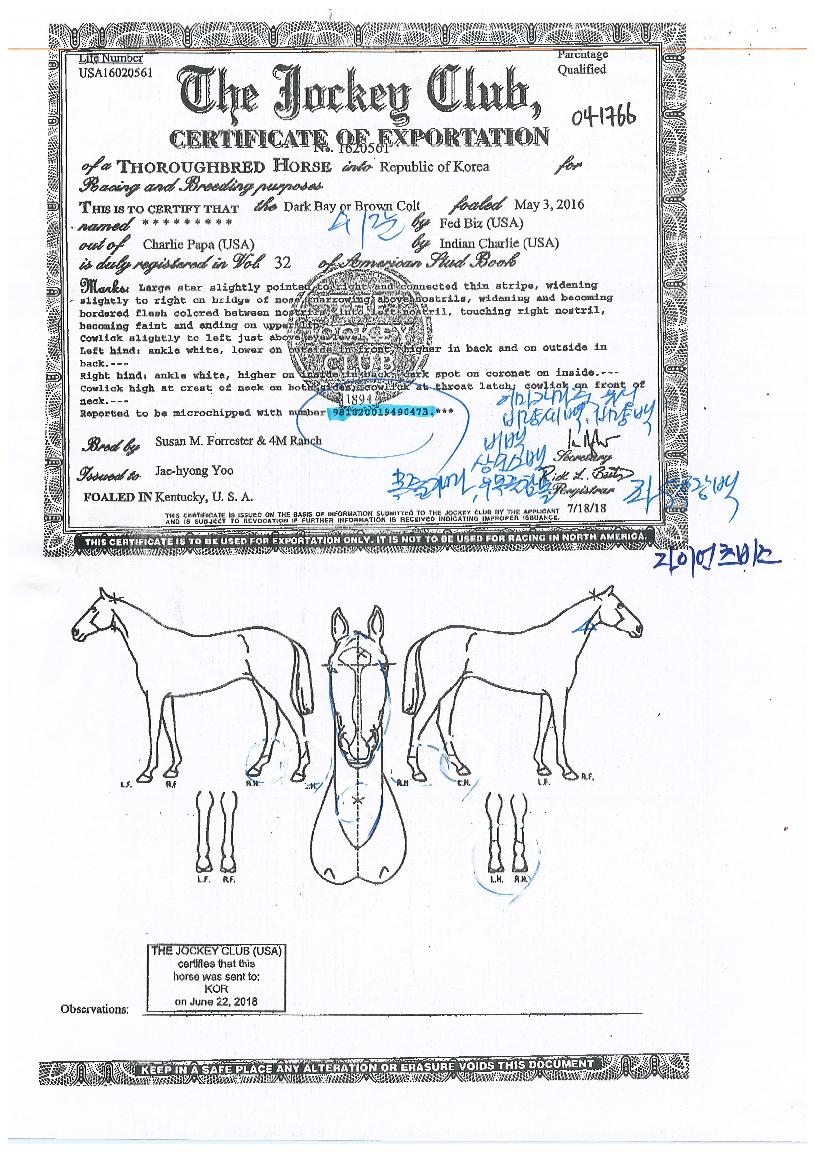 Life Number
USA16020561
Parentage
Qualified
The Jockey Club,
041766
CERTIFICATE OF EXPORTATION
No. 1620561
of a THOROUGHBRED HORSE into Republic of Korea for
Racing and Breeding purposes
THIS IS TO CERTIFY THAT the Dark Bay or Brown Colt foaled May 3, 2016
named * * * * * * * * * by Fed Biz (USA)
out of Charlie Papa (USA) by Indian Charlie (USA)
is duly registered in Vol. 32 of American Stud Book
Marks: Large star slightly pointed to right and connected thin stripe, widening
slightly to right on bridge of nose, narrowing above nostrils, widening and becoming
bordered flesh colored between nostrils, into left nostril, touching right nostril,
becoming faint and ending on upper lip.
Cowlick slightly to left just above eye level.
Left hind: ankle white, lower on outside in front, higher in back and on outside in
back.---
Right hind: ankle white, higher on inside in back, dark spot on coronet on inside.---
Cowlick high at crest of neck on both sides; cowlick at throat latch; cowlick on front of
neck.---
THE JOCKEY CLUB
1894
Reported to be microchipped with number 981020019490473.***
Bred by Susan M. Forrester & 4M Ranch
비백
Secretary
Issued to Jae-hyong Yoo
Registrar
FOALED IN Kentucky, U. S. A.
7/18/18
THIS CERTIFICATE IS ISSUED ON THE BASIS OF INFORMATION SUBMITTED TO THE JOCKEY CLUB BY THE APPLICANT
AND IS SUBJECT TO REVOCATION IF FURTHER INFORMATION IS RECEIVED INDICATING IMPROPER ISSUANCE.
THIS CERTIFICATE IS TO BE USED FOR EXPORTATION ONLY. IT IS NOT TO BE USED FOR RACING IN NORTH AMERICA.
라이언츠비즈
L.F. R.F. R.H. L.H. R.H. L.H. L.F. R.F.
L.F. R.F. L.H. R.H.
THE JOCKEY CLUB (USA)
certifies that this
horse was sent to:
KOR
on June 22, 2018
Observations:
KEEP IN A SAFE PLACE ANY ALTERATION OR ERASURE VOIDS THIS DOCUMENT